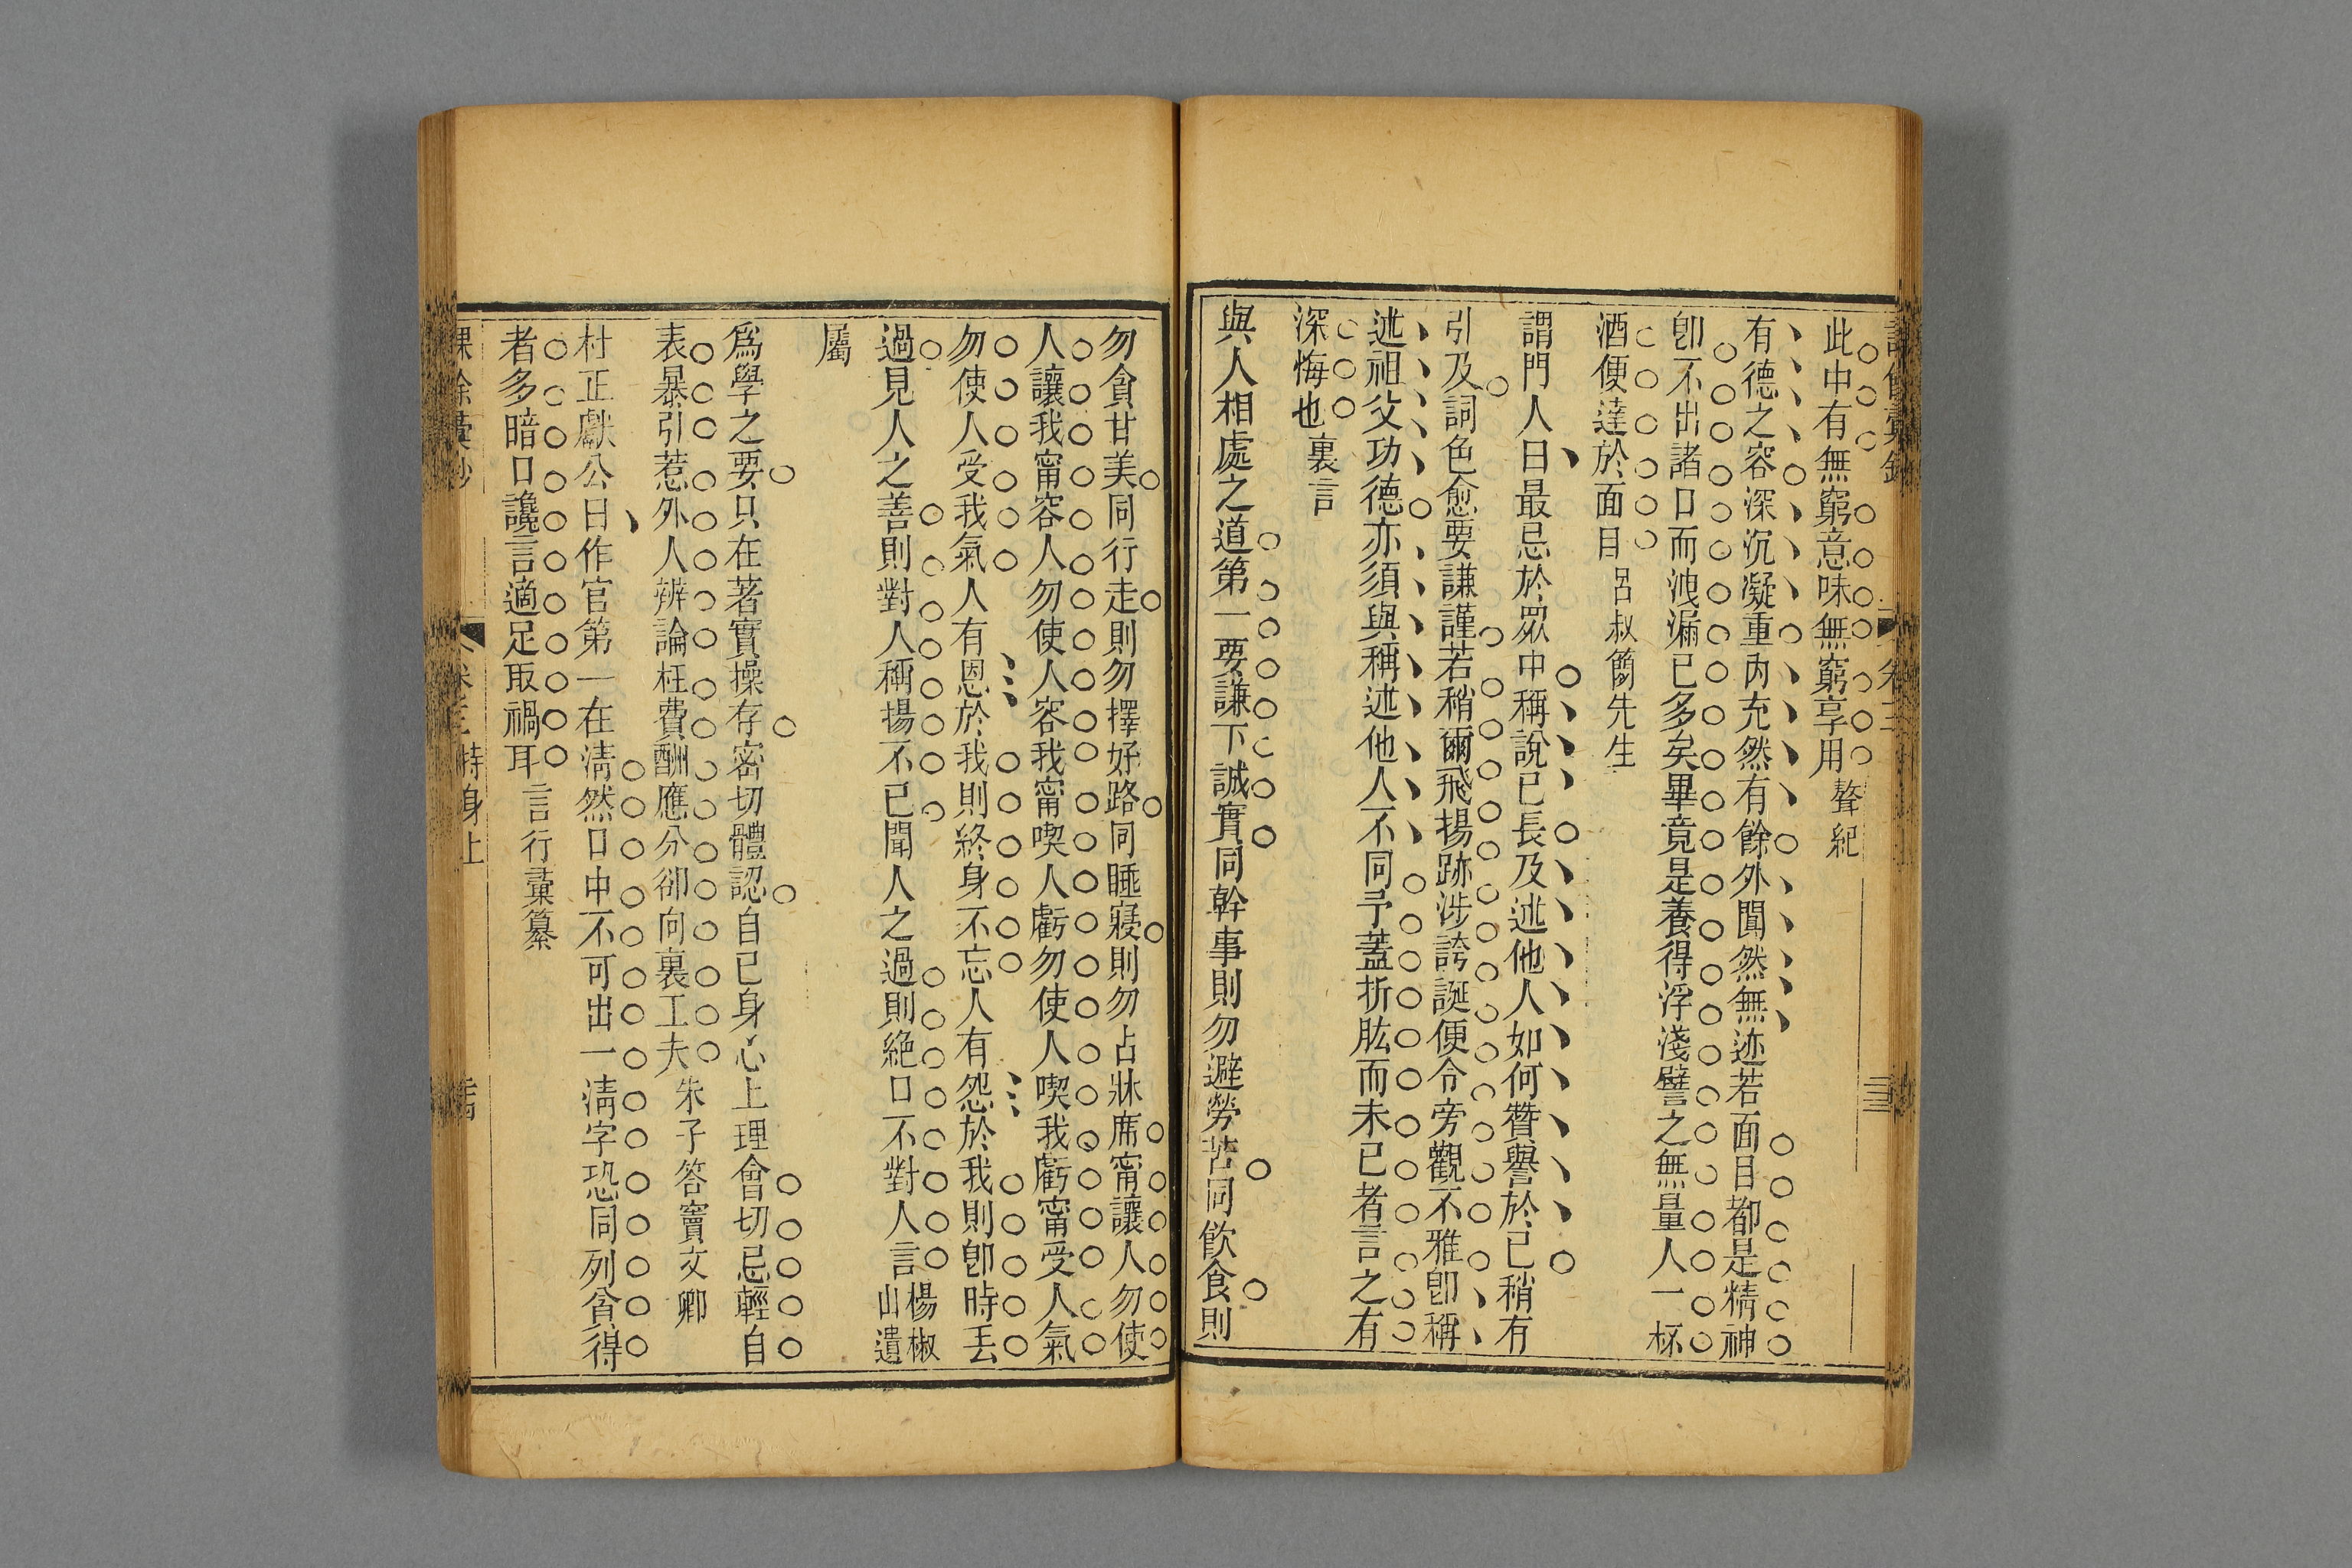 此中有無窮意味無窮享用 聱紀
有德之容深沉凝重內充然有餘外闇然無迹若面目都是精神
卽不出諸口而洩漏已多矣畢竟是養得浮淺譬之無量人一杯
酒便達於面目 呂叔簡先生
謂門人曰最忌於眾中稱說已長及述他人如何贊譽於已稍有
引及詞色愈要謙謹若稍爾飛揚跡涉誇誕便令旁觀不雅卽稱
述祖父功德亦須與稱述他人不同予蓋折肱而未已者言之有
深悔也 裏言
與人相處之道第一要謙下誠實同幹事則勿避勞苦同飲食則
勿貪甘美同行走則勿擇好路同睡寢則勿占牀席甯讓人勿使
人讓我甯容人勿使人容我甯喫人虧勿使人喫我虧甯受人氣
勿使人受我氣人有恩於我則終身不忘人有怨於我則卽時丟
過見人之善則對人稱揚不已聞人之過則絕口不對人言 楊椒山遺
屬
爲學之要只在著實操存密切體認自己身心上理會切忌輕自
表暴引惹外人辨論枉費酬應分卻向裏工夫 朱子答竇文卿
村正獻公曰作官第一在淸然口中不可出一淸字恐同列貪得
者多暗口讒言適足取禍耳 言行彙纂
課餘彙鈔 卷三 持身上